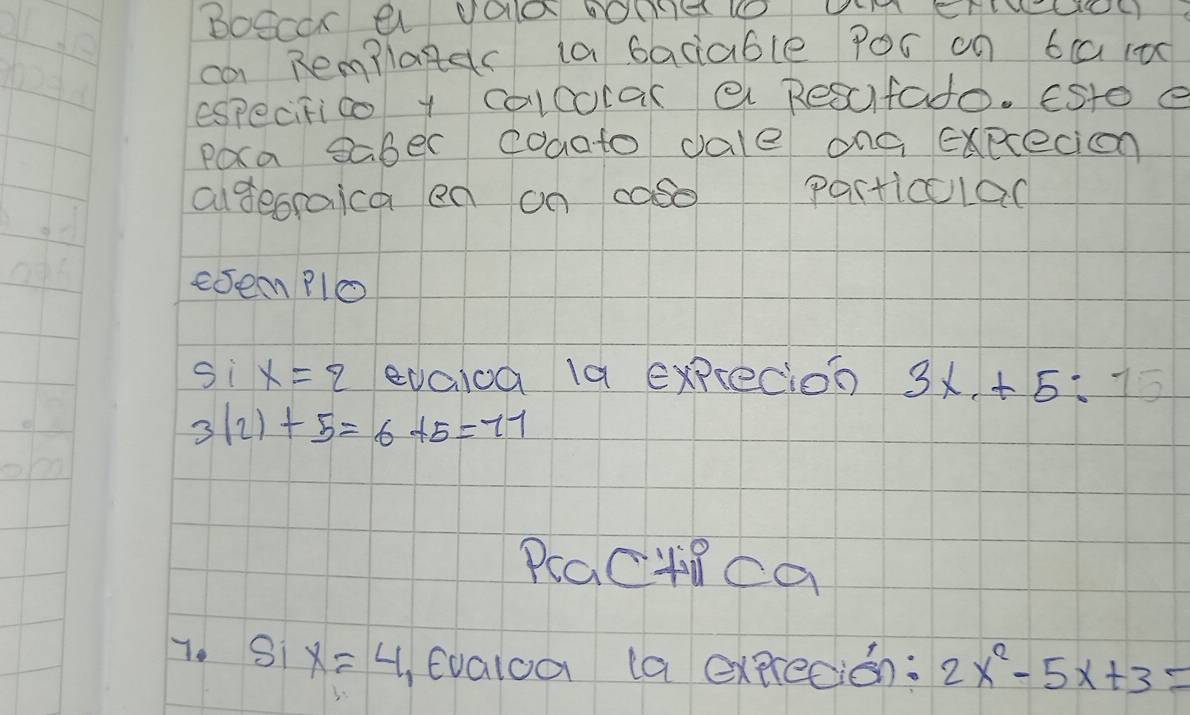 Boscar el valor
ca Remplazar la bariable Por un
especifico y calcular el Resultado. Esto e
para saber coanto vale ona Exprecion
algebraica en un caso particular
eJemplo
si x = 2 evaloa la exprecion 3x. + 5: 15
3(2) + 5 = 6 + 5 = 11
Practica
1. Si x = 4, Evaloa la expreción: 2x² - 5x + 3 =